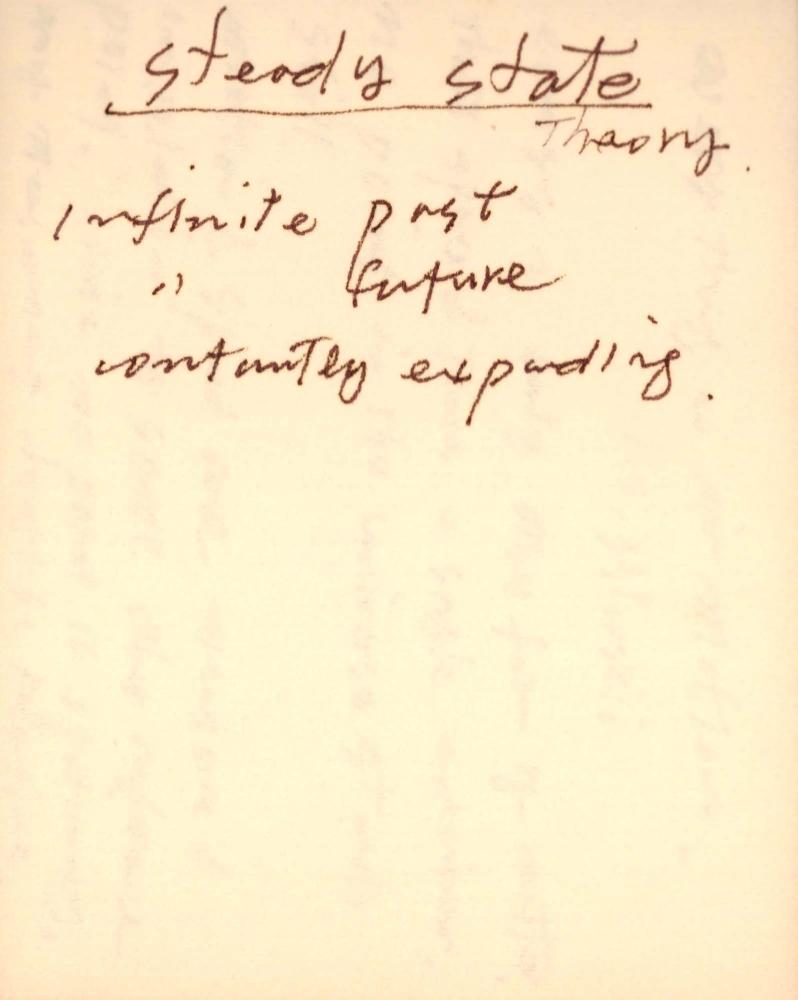 steady state
Theory.
Infinite past
" future
contantly expanding.